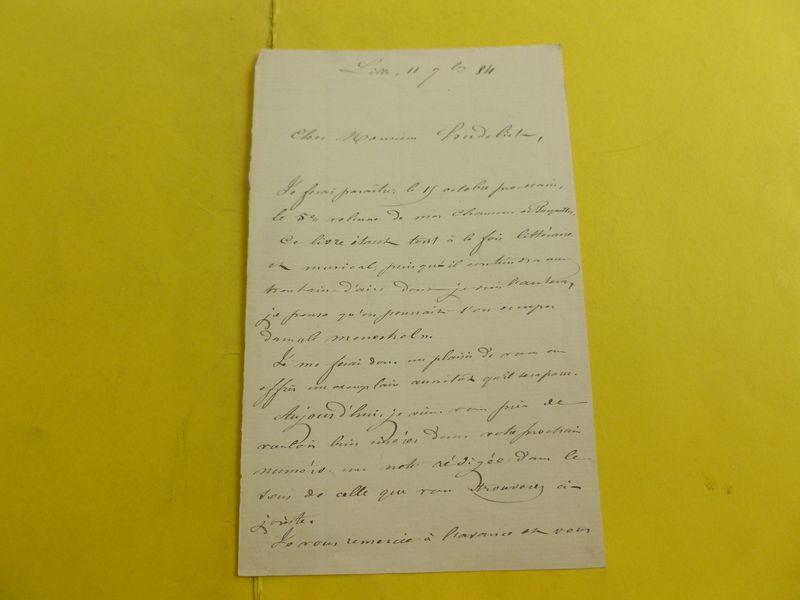 Lille, 11 7bre 84
Cher Monsieur
Je ferai paraître, le 15 octobre prochain,
le 5e volume de mes Chansons et Pasquilles.
Ce livre étant tout à la fois littéraire
et musical, puisqu'il contiendra une
trentaine d'airs dont je suis l'auteur,
je pense qu'on pourrait s'en occuper
dans le menestrel.
Je me ferai donc un plaisir de vous en
offrir un exemplaire aussitôt qu'il sera paru.
Aujourd'hui, je viens vous prier de
vouloir bien insérer dans votre prochain
numéro, une note rédigée dans le
sens de celle que vous trouverez ci-
jointe.
Je vous remercie à l'avance et vous